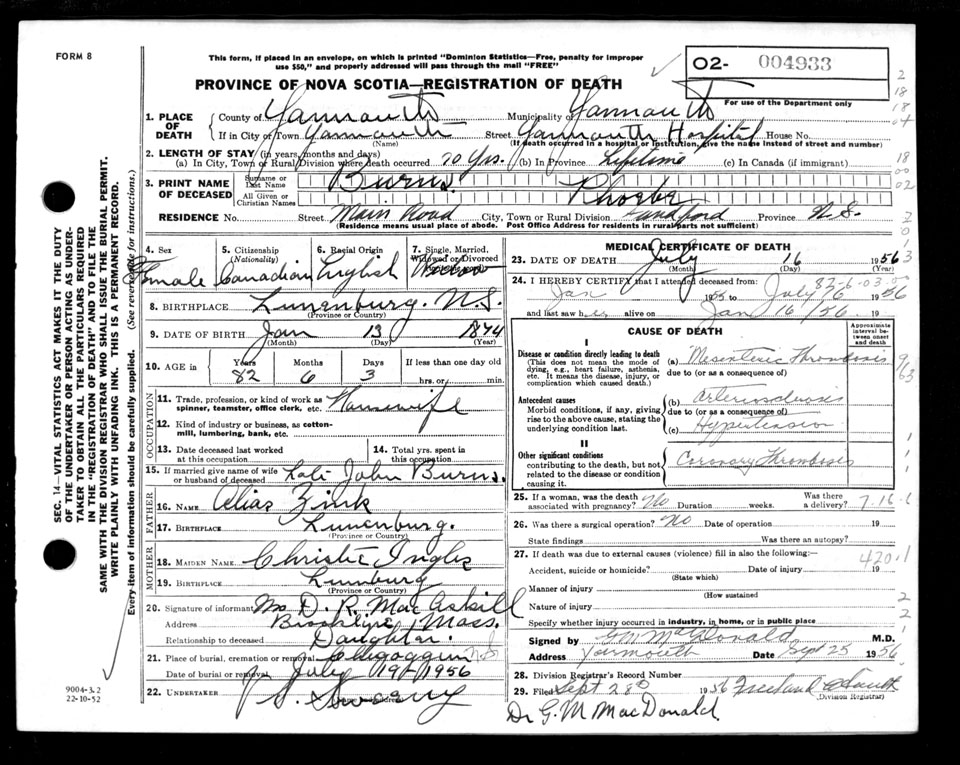 FORM 8
This form, if placed in an envelope, on which is printed "Dominion Statistics—Free, penalty for improper
use $50," and properly addressed will pass through the mail "FREE"
O2- 004933
For use of the Department only
PROVINCE OF NOVA SCOTIA—REGISTRATION OF DEATH
1. PLACE OF DEATH
County of Yarmouth Municipality of Yarmouth
If in City or Town Yarmouth Street Yarmouth Hospital House No.
(Name) (If death occurred in a hospital or institution, give the name instead of street and number)
2. LENGTH OF STAY (in years, months and days)
(a) In City, Town or Rural Division where death occurred 70 yrs. (b) In Province Lifetime (c) In Canada (if immigrant)
3. PRINT NAME OF DECEASED
Surname or Last Name Burns.
All Given or Christian Names Phoebe
RESIDENCE No. Street Main Road City, Town or Rural Division Sandford Province N.S.
(Residence means usual place of abode. Post Office Address for residents in rural parts not sufficient)
4. Sex Female
5. Citizenship (Nationality) Canadian
6. Racial Origin English
7. Single, Married, Widowed or Divorced
8. BIRTHPLACE Lunenburg. N.S.
(Province or Country)
9. DATE OF BIRTH Jan 13 1874
(Month) (Day) (Year)
10. AGE IN Years 82 Months 6 Days 3 If less than one day old
hrs. or min.
OCCUPATION
11. Trade, profession, or kind of work as
spinner, teamster, office clerk, etc. Housewife
12. Kind of industry or business, as cotton-
mill, lumbering, bank, etc.
13. Date deceased last worked
at this occupation
14. Total yrs. spent in
this occupation
15. If married give name of wife
or husband of deceased Late John Burns.
FATHER
16. NAME Alias Zink
17. BIRTHPLACE Lunenburg.
(Province or Country)
MOTHER
18. MAIDEN NAME Christie Ingles
19. BIRTHPLACE Lunburg
(Province or Country)
20. Signature of informant Mrs D. R. MacAskill
Address Brookline, Mass.
Relationship to deceased Daughter.
21. Place of burial, cremation or removal Chegoggin N.S
Date of burial or removal July 19th 1956
22. UNDERTAKER
MEDICAL CERTIFICATE OF DEATH
23. DATE OF DEATH July 16 1956
(Month) (Day) (Year)
24. I HEREBY CERTIFY that I attended deceased from:
Jan 1955 to July 16 1956
and last saw her alive on Jan 16/56. 19
CAUSE OF DEATH
Approximate interval between onset and death
I
Disease or condition directly leading to death
(This does not mean the mode of
dying, e.g., heart failure, asthenia,
etc. It means the disease, injury, or
complication which caused death.)
(a) Mesenteric Thrombosis
due to (or as a consequence of)
Antecedent causes
Morbid conditions, if any, giving
rise to the above cause, stating the
underlying condition last.
(b) Arteriosclerosis
due to (or as a consequence of)
(c) Hypertension
II
Other significant conditions
contributing to the death, but not
related to the disease or condition
causing it.
Coronary Thrombosis
25. If a woman, was the death
associated with pregnancy? No Duration weeks. Was there
a delivery?
26. Was there a surgical operation? No Date of operation 19
State findings Was there an autopsy?
27. If death was due to external causes (violence) fill in also the following:—
Accident, suicide or homicide? Date of injury 19
(State which)
Manner of injury
(How sustained)
Nature of injury
Specify whether injury occurred in industry, in home, or in public place
Signed by GM MacDonald M.D.
Address Yarmouth Date Sept 25 1956
28. Division Registrar's Record Number
29. Filed Sept 28th 1956
(Division Registrar)
Dr G. M MacDonald
9004-3.2
22-10-52
SEC. 14—VITAL STATISTICS ACT MAKES IT THE DUTY
OF THE UNDERTAKER OR PERSON ACTING AS UNDER-
TAKER TO OBTAIN ALL THE PARTICULARS REQUIRED
IN THE "REGISTRATION OF DEATH" AND TO FILE THE
SAME WITH THE DIVISION REGISTRAR WHO SHALL ISSUE THE BURIAL PERMIT.
WRITE PLAINLY WITH UNFADING INK. THIS IS A PERMANENT RECORD.
Every item of information should be carefully supplied. (See reverse side for instructions.)